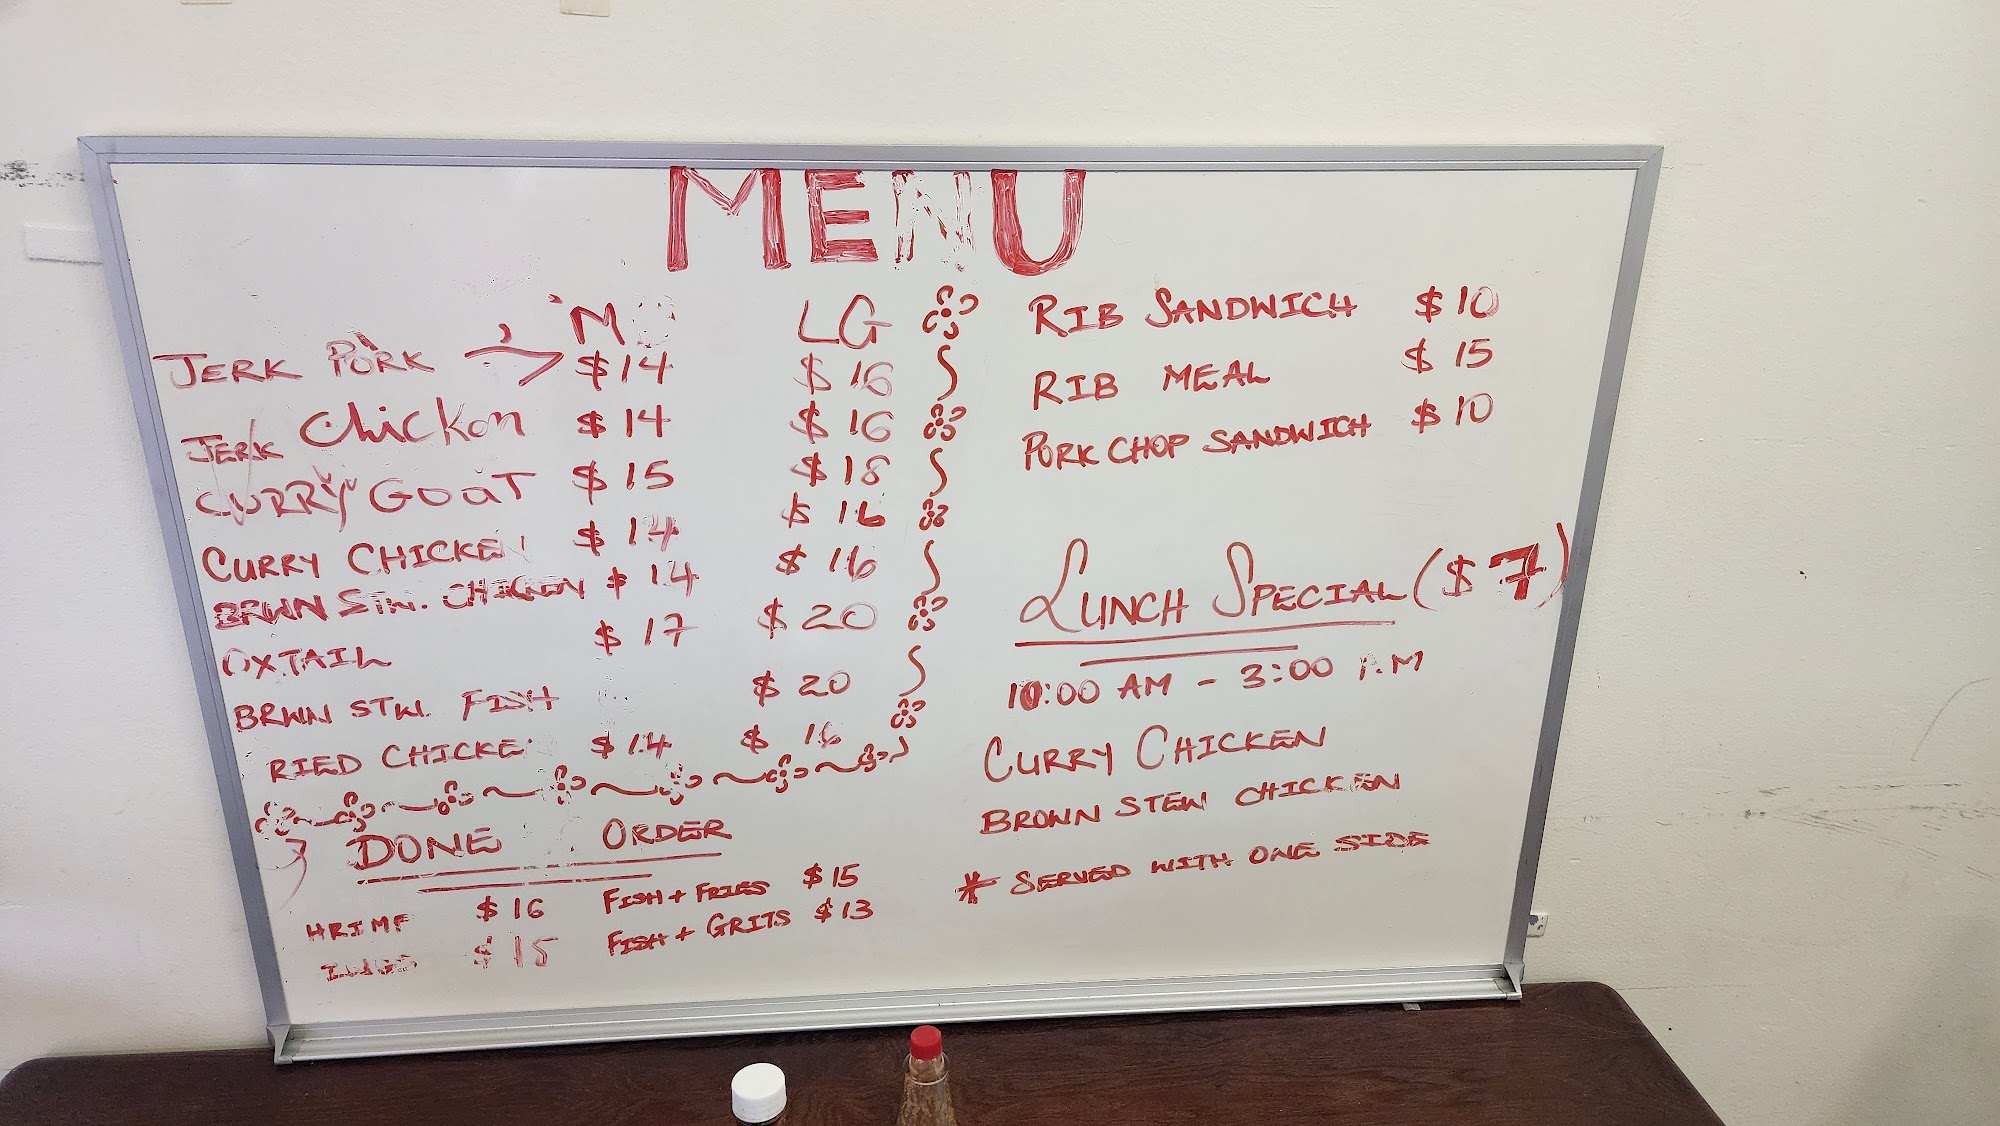 MENU
M LG
JERK PORK $14 $16
JERK Chicken $14 $16
CURRY GOAT $15 $18
CURRY CHICKEN $14 $16
BRWN STW. CHICKEN $14 $16
OXTAIL $17 $20
BRWN STW. FISH $20
RIED CHICKE $14 $16
DONE ORDER
HRIMP $16 FISH + FRIES $15
$15 FISH + GRITS $13
RIB SANDWICH $10
RIB MEAL $15
PORK CHOP SANDWICH $10
LUNCH SPECIAL ($7)
10:00 AM - 3:00 P.M
CURRY CHICKEN
BROWN STEW CHICKEN
* SERVED WITH ONE SIDE